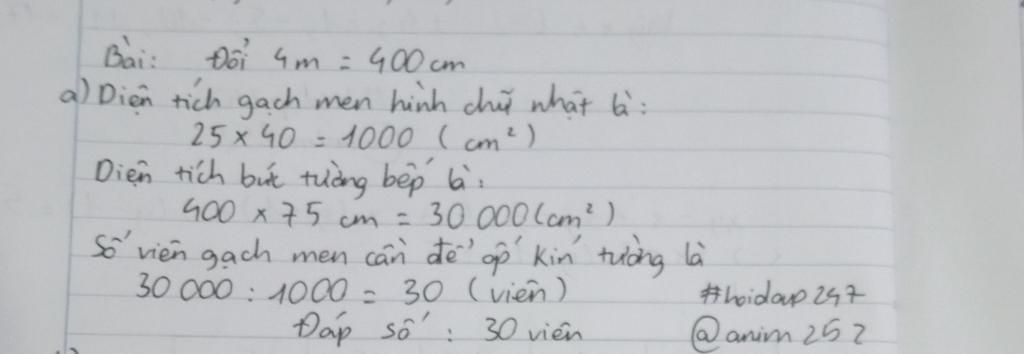 Bài: Đổi 4m = 400cm
a) Diện tích gạch men hình chữ nhật là:
25 × 40 = 1000 (cm²)
Diện tích bức tường bếp là:
400 × 75 cm = 30 000 (cm²)
Số viên gạch men cần để ốp kín tường là
30 000 : 1000 = 30 (viên)
#hoidap247
Đáp số : 30 viên
@anim252